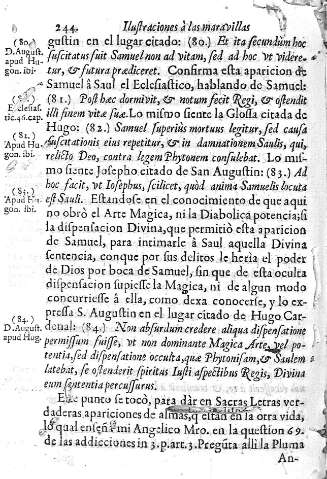 244. Ilustraciones à las maravillas
(80.)
D. August.
apud Hu-
gon. ibi.
gustin en el lugar citado: (80.) Et ita secundum hoc
suscitatus fuit Samuel non ad vitam, sed ad hoc vt videre-
tur, & futura prædiceret. Confirma esta aparicion de
Samuel à Saul el Eclesiastico, hablando de Samuel:
(81.) Post hæc dormivit, & notum fecit Regi, & ostendit
illi finem vitæ suæ. Lo mismo siente la Glossa citada de
Hugo: (82.) Samuel superiùs mortuus legitur, sed causa
suscitationis eius repetitur, & in damnationem Saulis, qui,
relicto Deo, contra legem Phytonem consulebat. Lo mis-
mo siente Josepho citado de San Augustin: (83.) Ad
hoc facit, vt Iosephus, scilicet, quòd anima Samuelis locuta
est Sauli. Estandose en el conocimiento de que aqui
no obrò el Arte Magica, ni la Diabolica potencia; si
la dispensacion Divina, que permitiò esta aparicion
de Samuel, para intimarle à Saul aquella Divina
sentencia, conque por sus delitos le heria el poder
de Dios por boca de Samuel, sin que de esta oculta
dispensacion supiesse la Magica, ni de algun modo
concurriesse à ella, como dexa conocerse, y lo ex-
pressa S. Augustin en el lugar citado de Hugo Car-
denal: (84.) Non absurdum credere aliqua dispensatione
permissum fuisse, vt non dominante Magica Arte, vel po-
tentia, sed dispensatione occulta, quæ Phytonisam, & Saulem
latebat, se ostenderit spiritus Iusti aspectibus Regis, Divina
eum sententia percussurus.
Este punto se tocò, para dàr en Sacras Letras ver-
daderas apariciones de almas, q̃ estàn en la otra vida,
lo qual enseña mi Angelico Mro. en la question 69.
de las addicciones in 3. p. art. 3. Pregũta alli la Pluma
An-
Eclesias-
tic. 46. cap.
(81.)
Apud Hu-
gon. ibi.
(83.)
Apud Hu-
gon. ibi.
(84.)
D. August.
apud Hug.